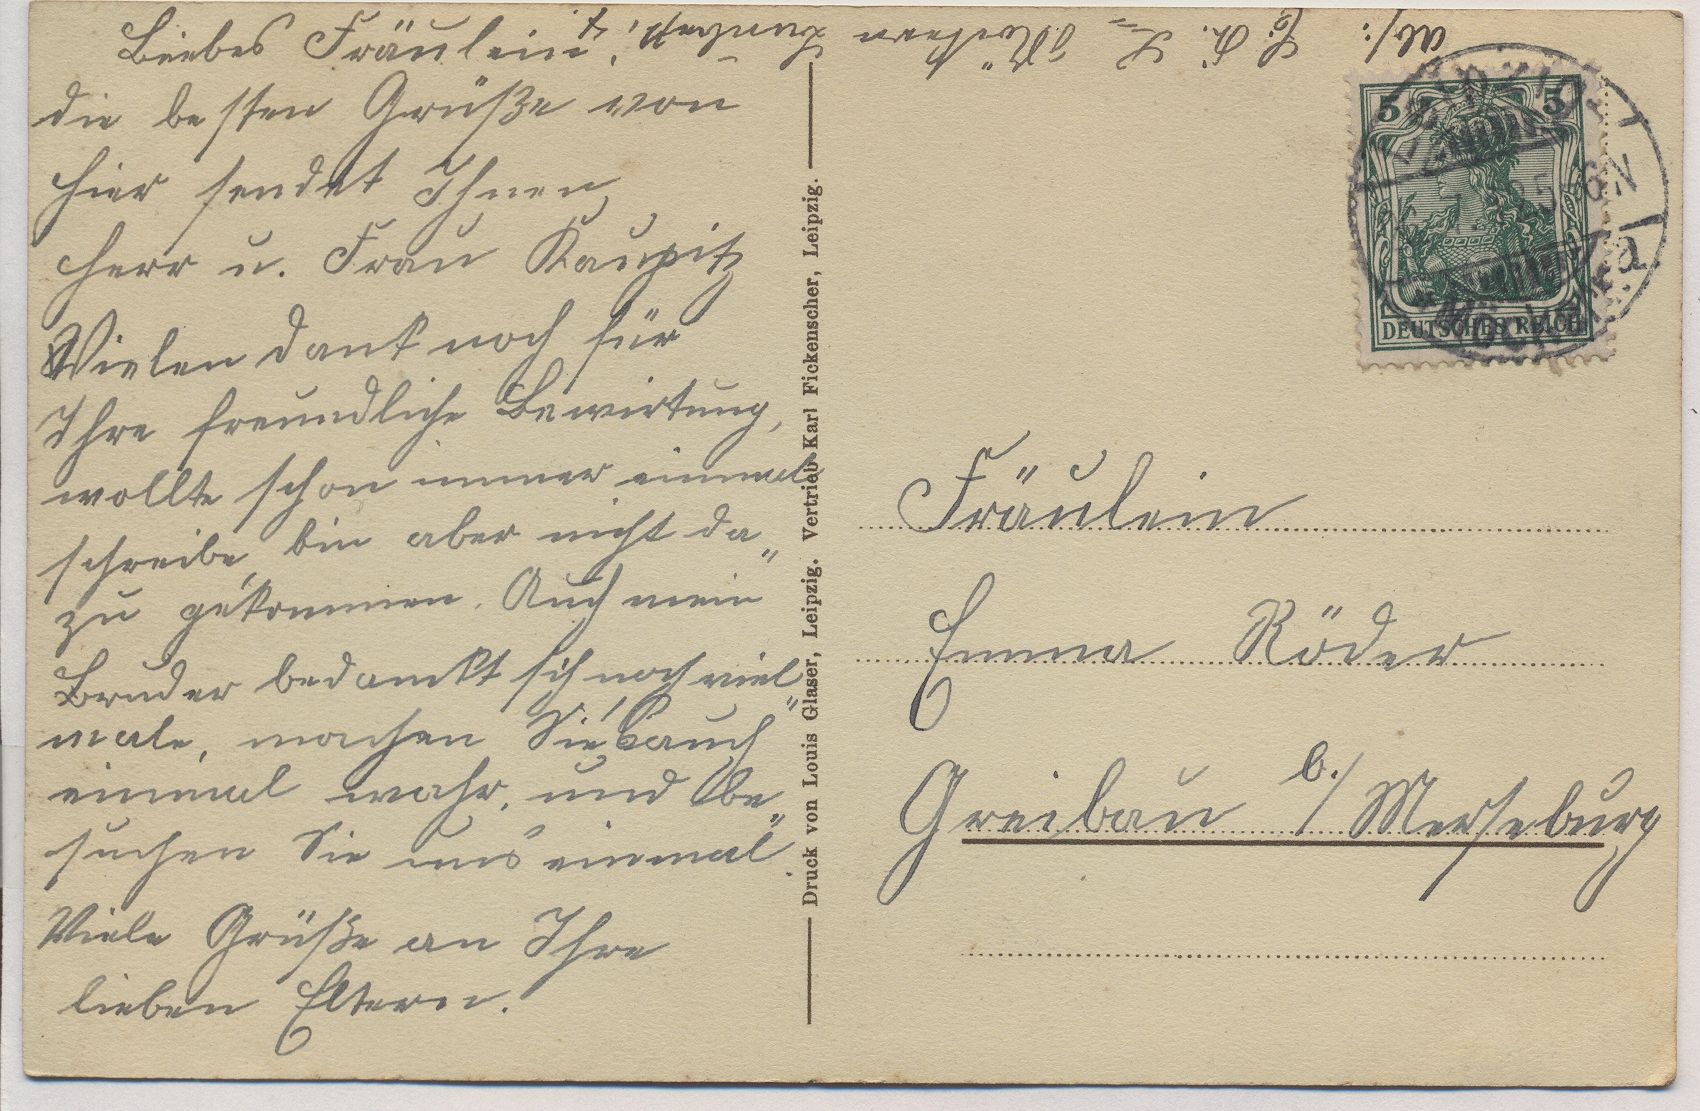 Liebes Fräulein!
die besten Grüße von
hier sendet Ihnen
Herr u. Frau Kaupitz
Vielen dank noch für
Ihre freundliche Bewirtung,
wollte schon immer einmal
schreibe, bin aber nicht da„
zu gekommen. Auch mein
Bruder bedankt sich noch viel„
male, machen Sie's auch
einmal wahr, und be„
suchen Sie uns einmal
Viele Grüße an Ihre
lieben Eltern.
Abs:
Druck von Louis Glaser, Leipzig. Vertrieb Karl Fickenscher, Leipzig.
5 5
DEUTSCHES REICH
Fräulein
Emma Röder
Greibau b./ Merseburg